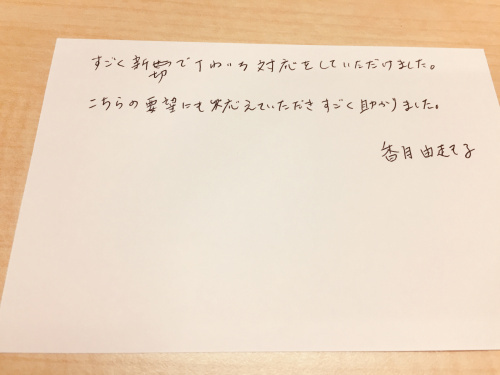 すごく親切でていねいな対応をしていただけました。
こちらの要望にも応えていただきすごく助かりました。
香月 由起子